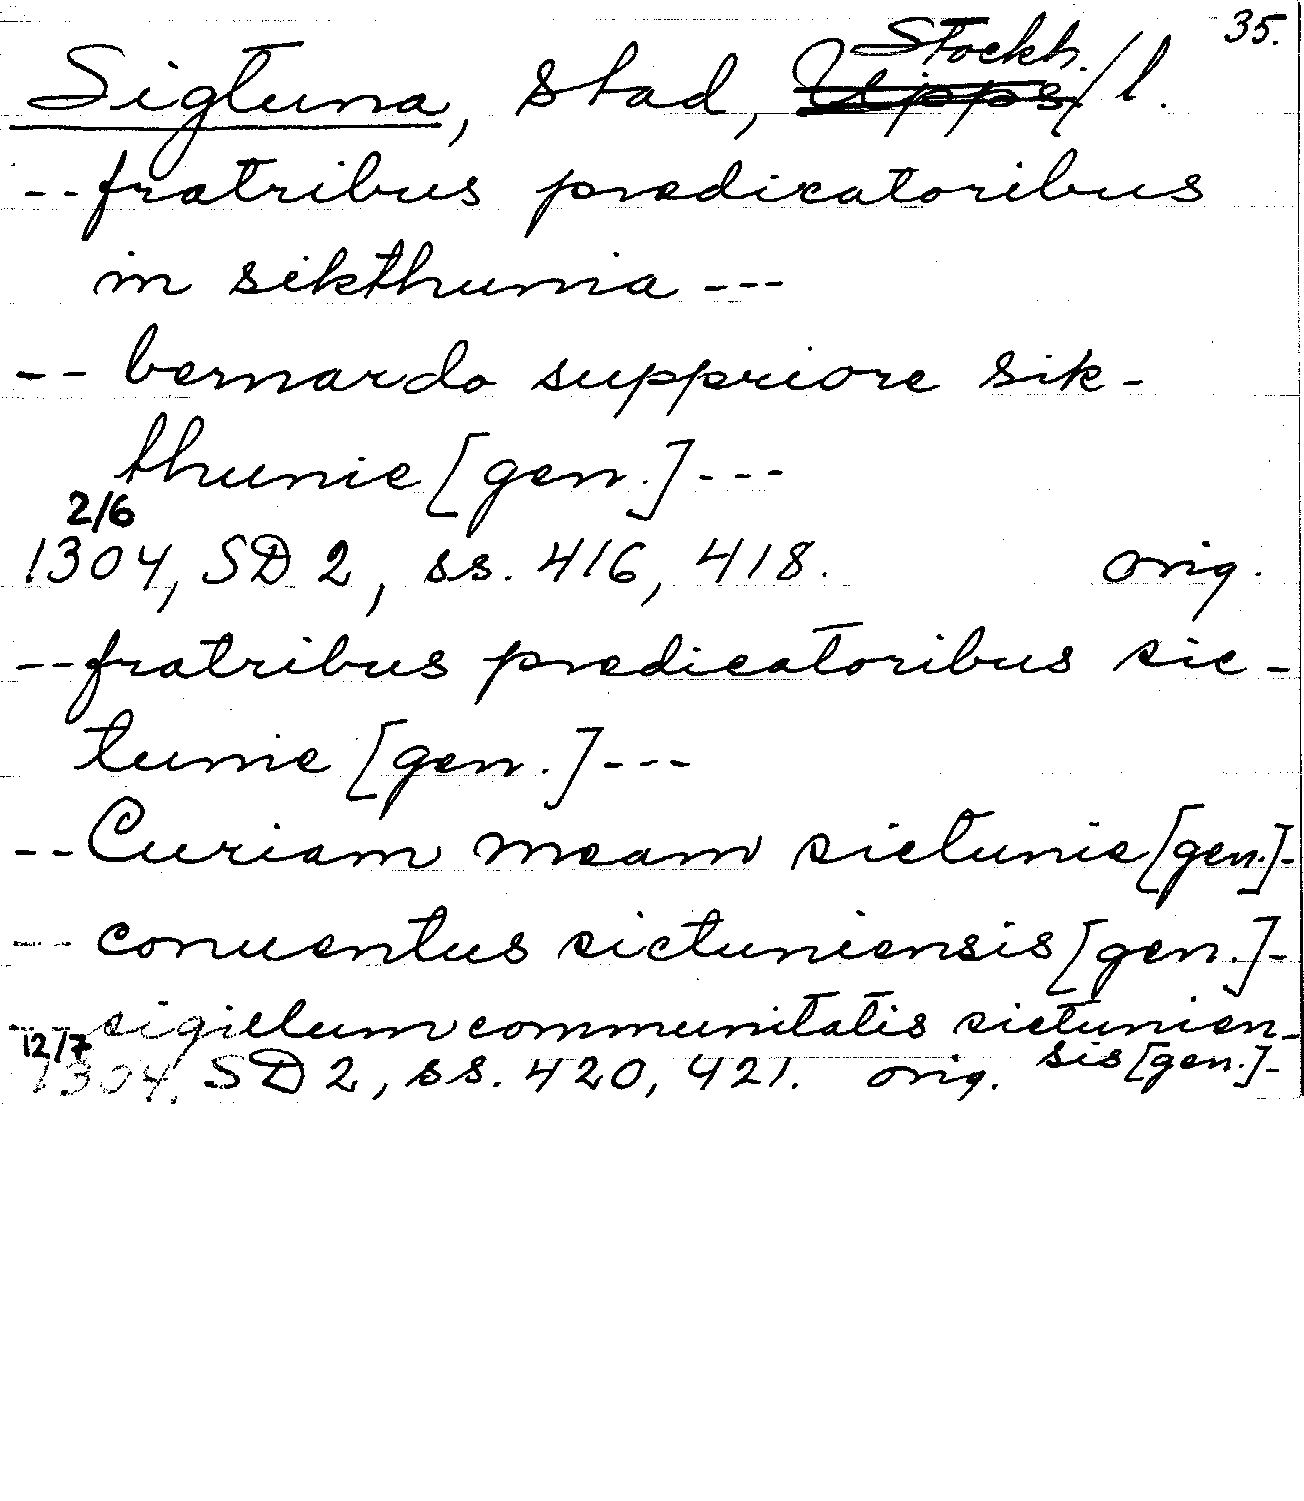 35.
Sigtuna, stad, Stockh. Upps/l.
-- fratribus predicatoribus
in sikthunia ---
-- bernardo suppriore sik-
thunie [gen.] ---
2/6
1304, SD 2, ss. 416, 418. orig.
-- fratribus predicatoribus sic-
tunie [gen.] ---
-- Curiam meam sictunie [gen.]-
--- conuentus sictuniensis [gen.]-
-- sigillum communitatis sictunien-
sis [gen.]-
12/7
1304, SD 2, ss. 420, 421. orig.